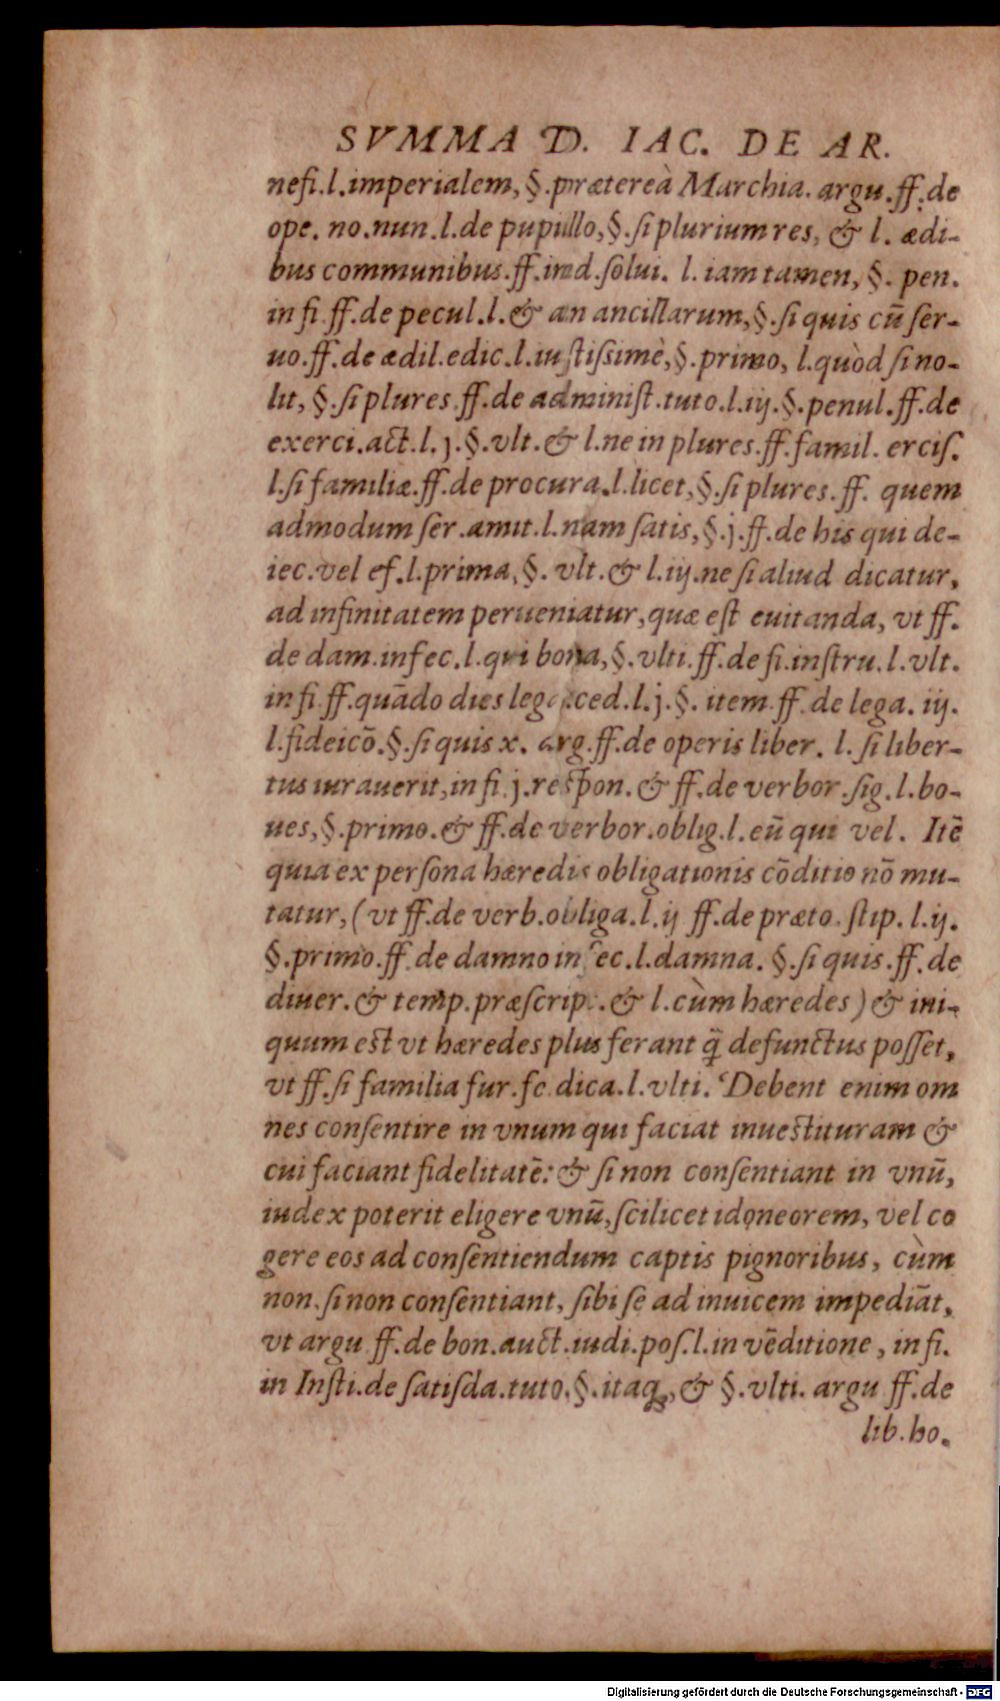 SVMMA D. IAC. DE AR.
nefi.l.imperialem,§.prætereà Marchia. argu.ff.de
ope. no.nun.l.de pupillo,§.si plurium res, & l. ædi-
bus communibus.ff.iud.solui. l. iam tamen, §. pen.
in fi ff.de pecul.l.& an ancillarum,§.si quis cū ser-
uo.ff.de ædil.edic.l.iustissimè,§.primo, l.quòd si no-
lit, §.si plures.ff.de administ.tuto.l.iij.§.penul.ff.de
exerci.act.l.j.§.vlt.& l.ne in plures.ff.famil. ercis.
l.si familiæ.ff.de procura.l.licet,§.si plures.ff. quem
admodum ser.amit.l.nam satis,§.j.ff.de his qui de-
iec.vel ef.l.prima,§. vlt.& l.iij.ne si aliud dicatur,
ad infinitatem perueniatur,quæ est euitanda, vt ff.
de dam.infec.l.qui bona,§.vlti.ff.de fi.instru.l.vlt.
in fi ff.quādo dies leg .ced.l.j.§. item ff.de lega. iij.
l.fideicō.§.si quis x. arg.ff.de operis liber. l. si liber-
tus iurauerit,in fi j.respon.& ff.de verbor.sig.l.bo-
ues,§.primo.& ff.de verbor.oblig.l.eū qui vel. Itē
quia ex persona hæredis obligationis cōditio nō mu-
tatur,(vt ff.de verb.obliga.l.ij ff.de præto.stip.l.ij.
§.primo.ff.de damno infec.l.damna.§.si quis.ff.de
diuer.& temp.præscrip.& l.cùm hæredes)& ini-
quum est vt hæredes plus ferant q̄ defunctus posset,
vt ff.si familia fur.fe dica.l.vlti. Debent enim om
nes consentire in vnum qui faciat inuestituram &
cui faciant fidelitatē: & si non consentiant in vnū,
iudex poterit eligere vnū,scilicet idoneorem, vel co
gere eos ad consentiendum captis pignoribus, cùm
non.si non consentiant, sibi se ad inuicem impediāt,
vt argu ff.de bon.auct.iudi.pos.l.in vēditione, in fi.
in Insti.de satisda.tuto.§.itaq;,& §.vlti. argu ff.de
lib.ho.
Digitalisierung gefördert durch die Deutsche Forschungsgemeinschaft - DFG